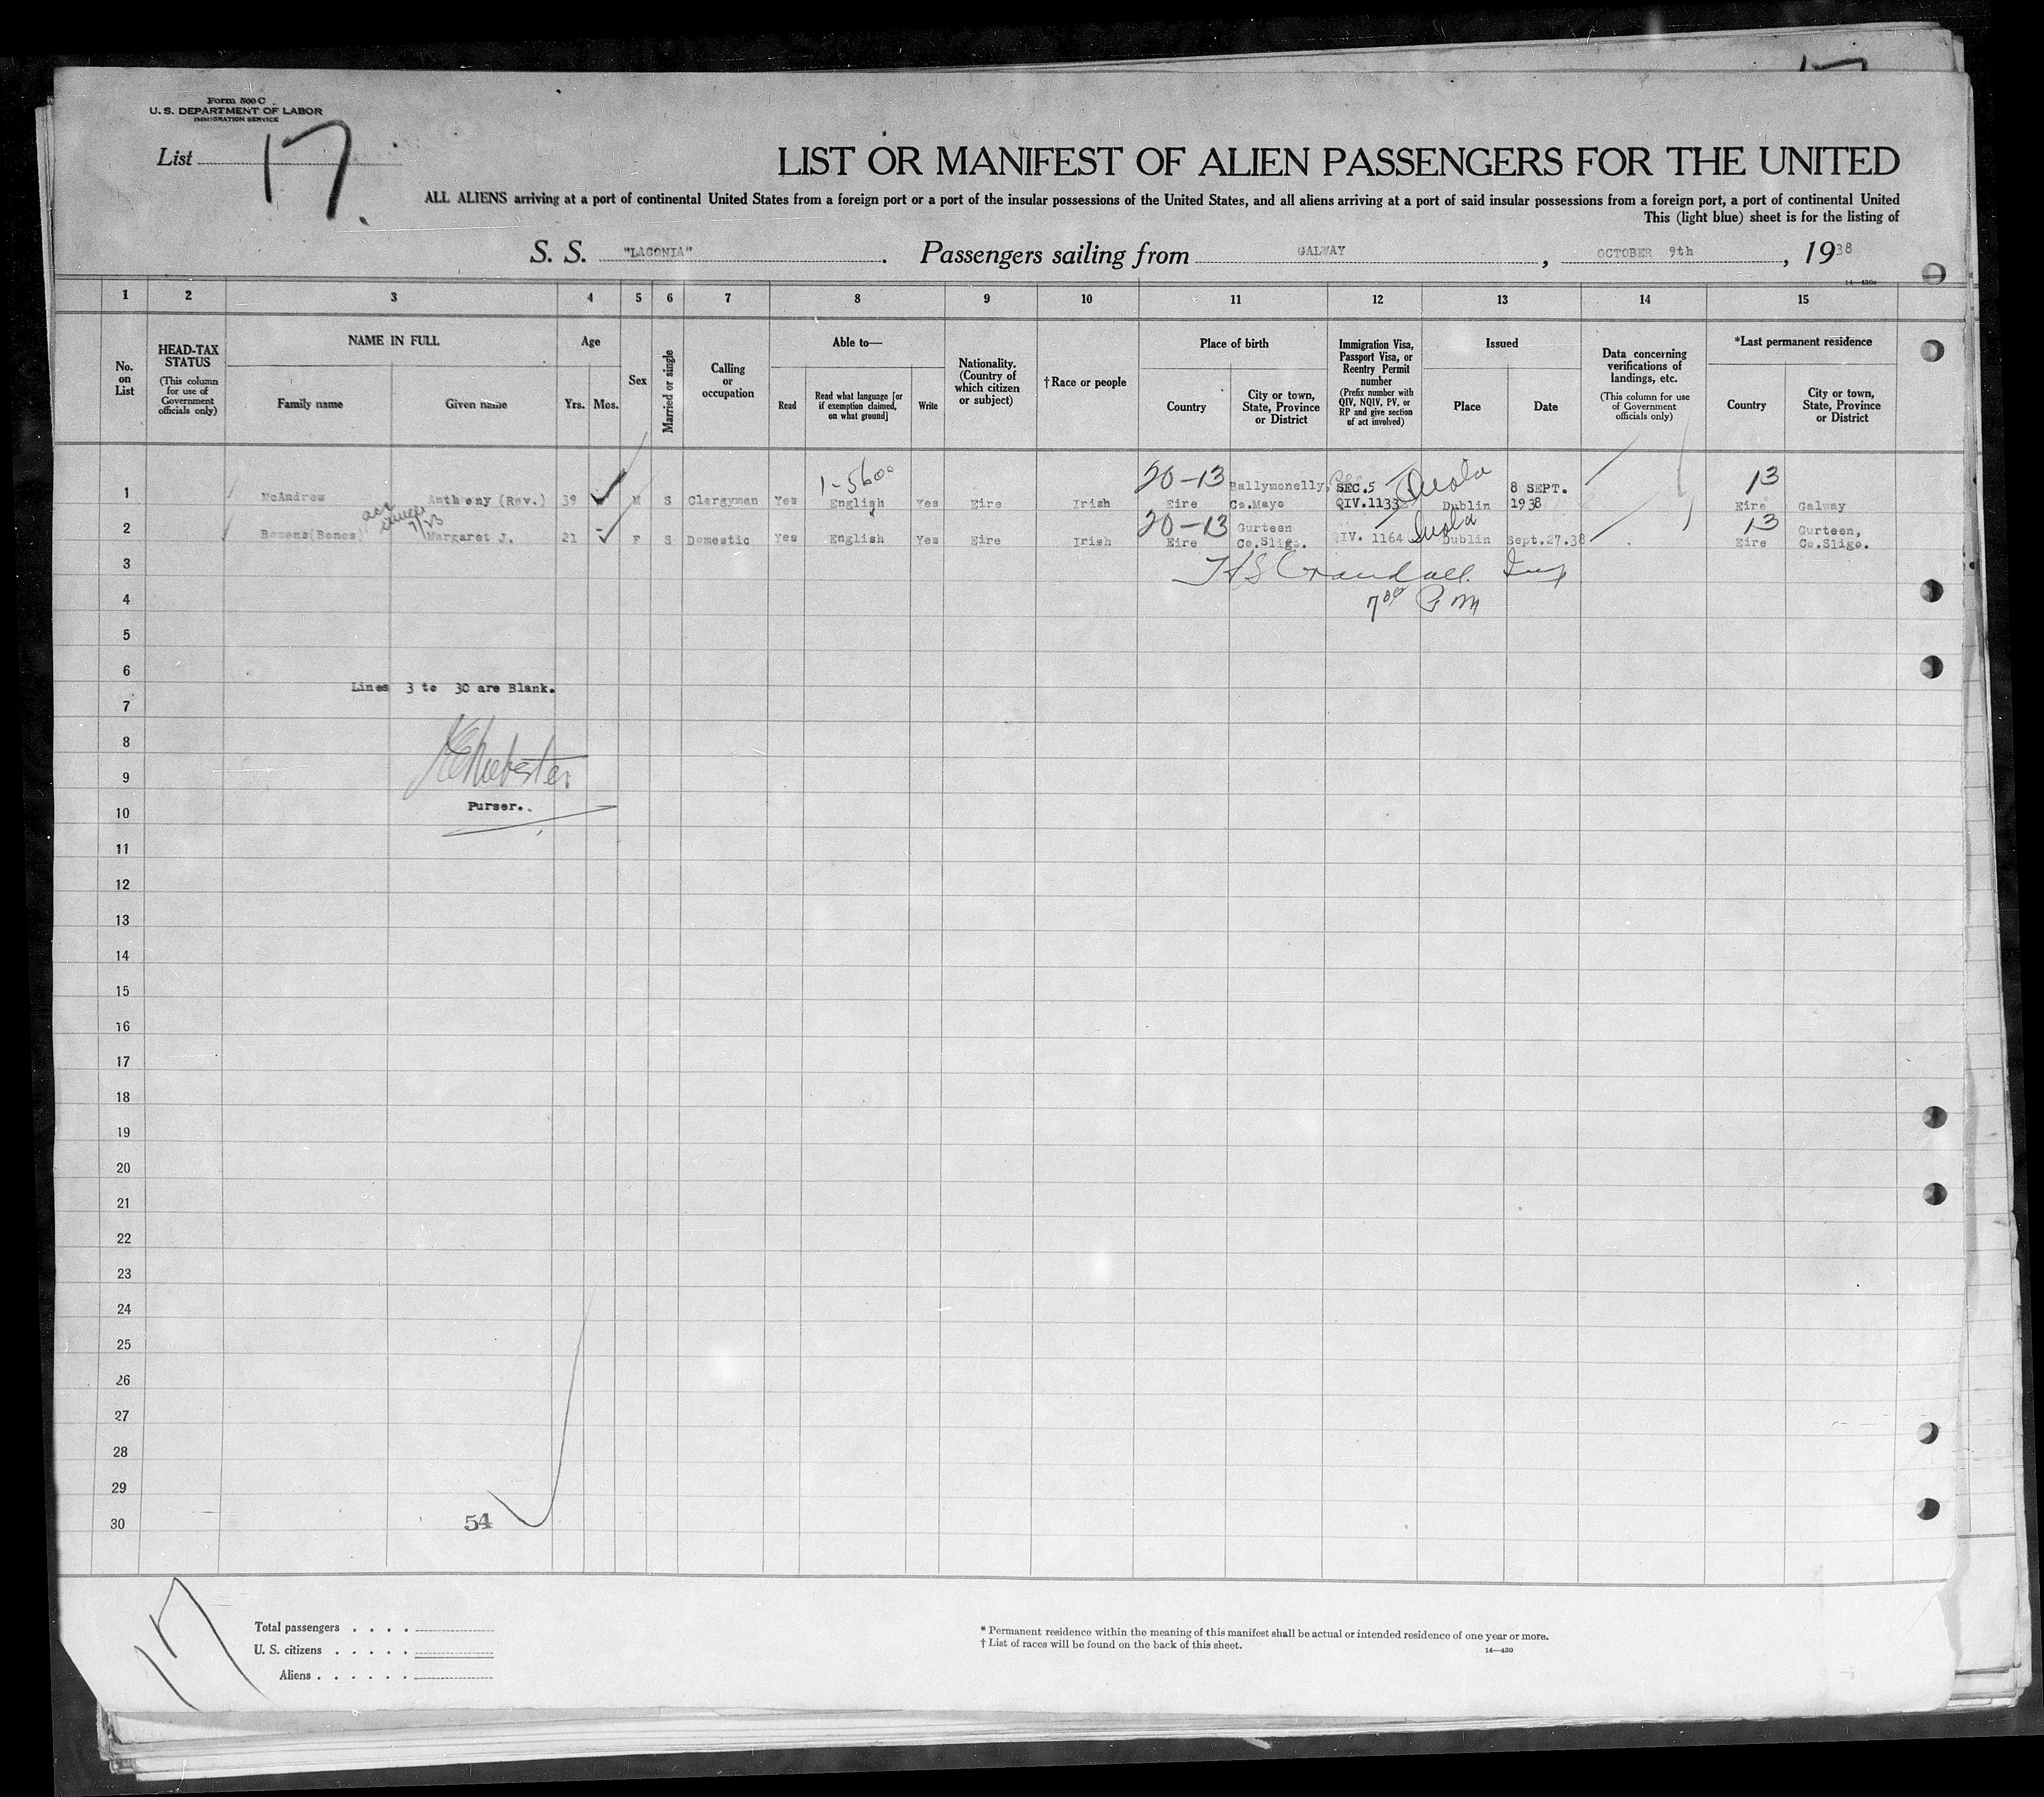 17
Form 500 C
U. S. DEPARTMENT OF LABOR
IMMIGRATION SERVICE
List 17.
LIST OR MANIFEST OF ALIEN PASSENGERS FOR THE UNITED
ALL ALIENS arriving at a port of continental United States from a foreign port or a port of the insular possessions of the United States, and all aliens arriving at a port of said insular possessions from a foreign port, a port of continental United
This (light blue) sheet is for the listing of
S. S. "LACONIA". Passengers sailing from GALWAY, OCTOBER 9th, 1938
14—430c
1 2 3 4 5 6 7 8 9 10 11 12 13 14 15
No. on List
HEAD-TAX STATUS (This column for use of Government officials only)
NAME IN FULL Family name Given name
Age Yrs. Mos.
Sex
Married or single
Calling or occupation
Able to— Read Read what language [or if exemption claimed, on what ground] Write
Nationality. (Country of which citizen or subject)
†Race or people
Place of birth Country City or town, State, Province or District
Immigration Visa, Passport Visa, or Reentry Permit number (Prefix number with QIV, NQIV, PV, or RP and give section of act involved)
Issued Place Date
Data concerning verifications of landings, etc. (This column for use of Government officials only)
*Last permanent residence Country City or town, State, Province or District
1-5600 20-13 13
1 McAndrew Anthony (Rev.) 39 M S Clergyman Yes English Yes Eire Irish Eire Ballymonelly, Co.Mayo SEC.5 QIV.1133 Dublin 8 SEPT. 1938 Eire Galway
20-13 13
2 Bowens(Bones) Margaret J. 21 F S Domestic Yes English Yes Eire Irish Eire Gurteen Co.Sligo. QIV. 1164 Dublin Sept.27.38 Eire Gurteen, Co.Sligo.
3 H S Crandall. Insp
4 7 00 P M
5
6
Lines 3 to 30 are Blank.
7
8
9
Webster
Purser.
10
11
12
13
14
15
16
17
18
19
20
21
22
23
24
25
26
27
28
29
30 54
17
Total passengers . . . .
U. S. citizens . . . . .
Aliens . . . . . .
* Permanent residence within the meaning of this manifest shall be actual or intended residence of one year or more.
† List of races will be found on the back of this sheet.
14—430